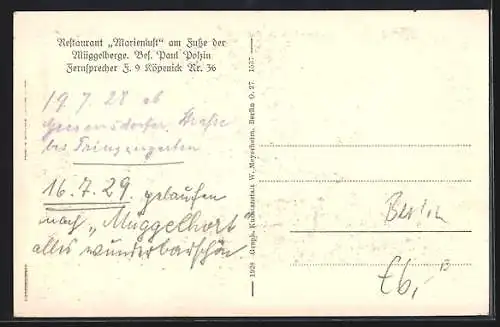 Restaurant „Marienlust" am Fuße der
Müggelberge. Bes. Paul Polzin
Fernsprecher F. 9 Köpenick Nr. 36
19.7.28 ab
Straße
bis
16.7.29. gelaufen
nach „Müggelhort"
alles wunderbarschön
1928 Graph. Kunstanstalt W. Meyerheim, Berlin O. 27. 1557
Berlin